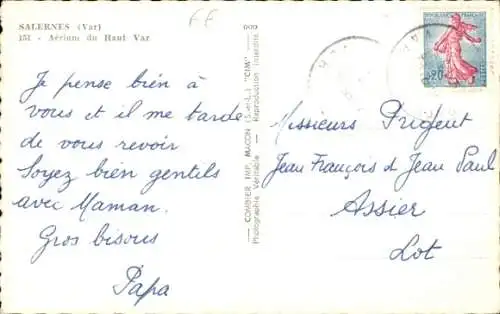 SALERNES (Var)
151 - Aérium du Haut Var
Je pense bien à
vous et il me tarde
de vous revoir
Soyez bien gentils
avec Maman.
Gros bisous
Papa
COMBIER IMP. MACON (S.-et-L.) "CIM"
Photographie Véritable - Reproduction Interdite
Messieurs Prigent
Jean François & Jean Paul
Assier
Lot